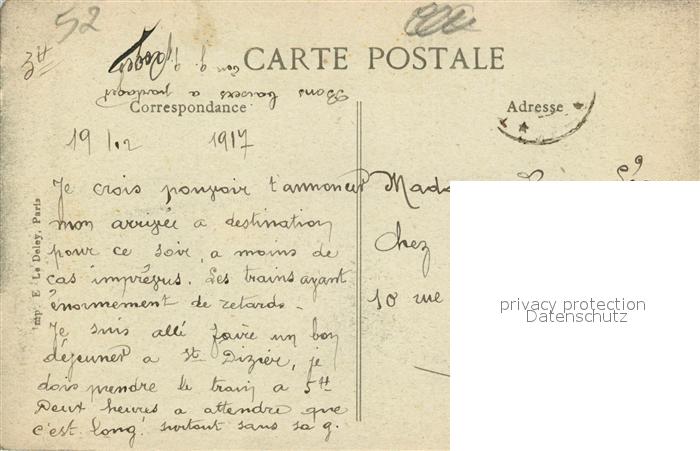 52
3H
CARTE POSTALE
Bons baisers a partager
ton g.
Correspondance
Adresse
19 1.2 1917
Je crois pouvoir t'annoncer
mon arrivée a destination
pour ce soir, a moins de
cas imprévus. Les trains ayant
énormement de retards -
Je suis allé faire un bon
déjeuner a St Dizier, je
dois prendre le train a 5H
Deux heures a attendre que
c'est long! surtout sans sa g.
chez
10 rue
Imp. E. Le Deley, Paris
privacy protection
Datenschutz